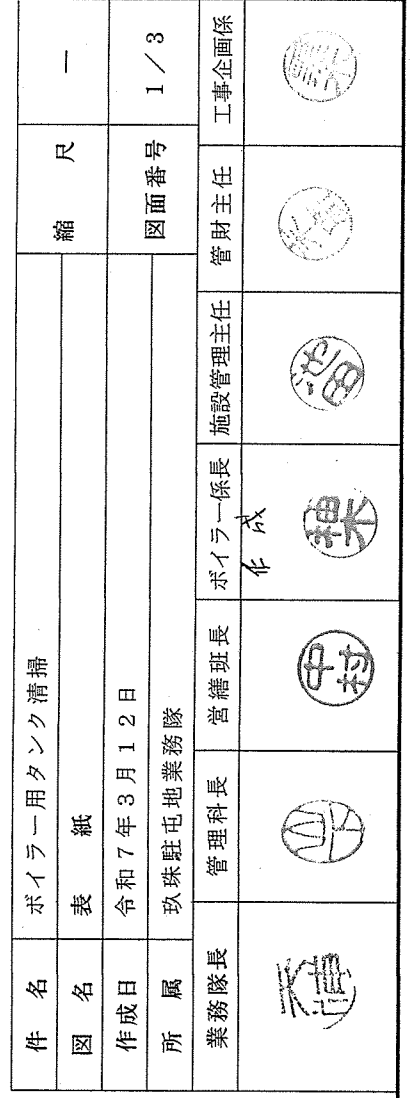 件 名 ボイラー用タンク清掃 縮 尺 ー
図 名 表 紙
作成日 令和7年3月12日 図面番号 1/3
所 属 玖珠駐屯地業務隊
業務隊長 管理科長 営繕班長 ボイラー係長 施設管理主任 管財主任 工事企画係
作成
中村 柚木 池田